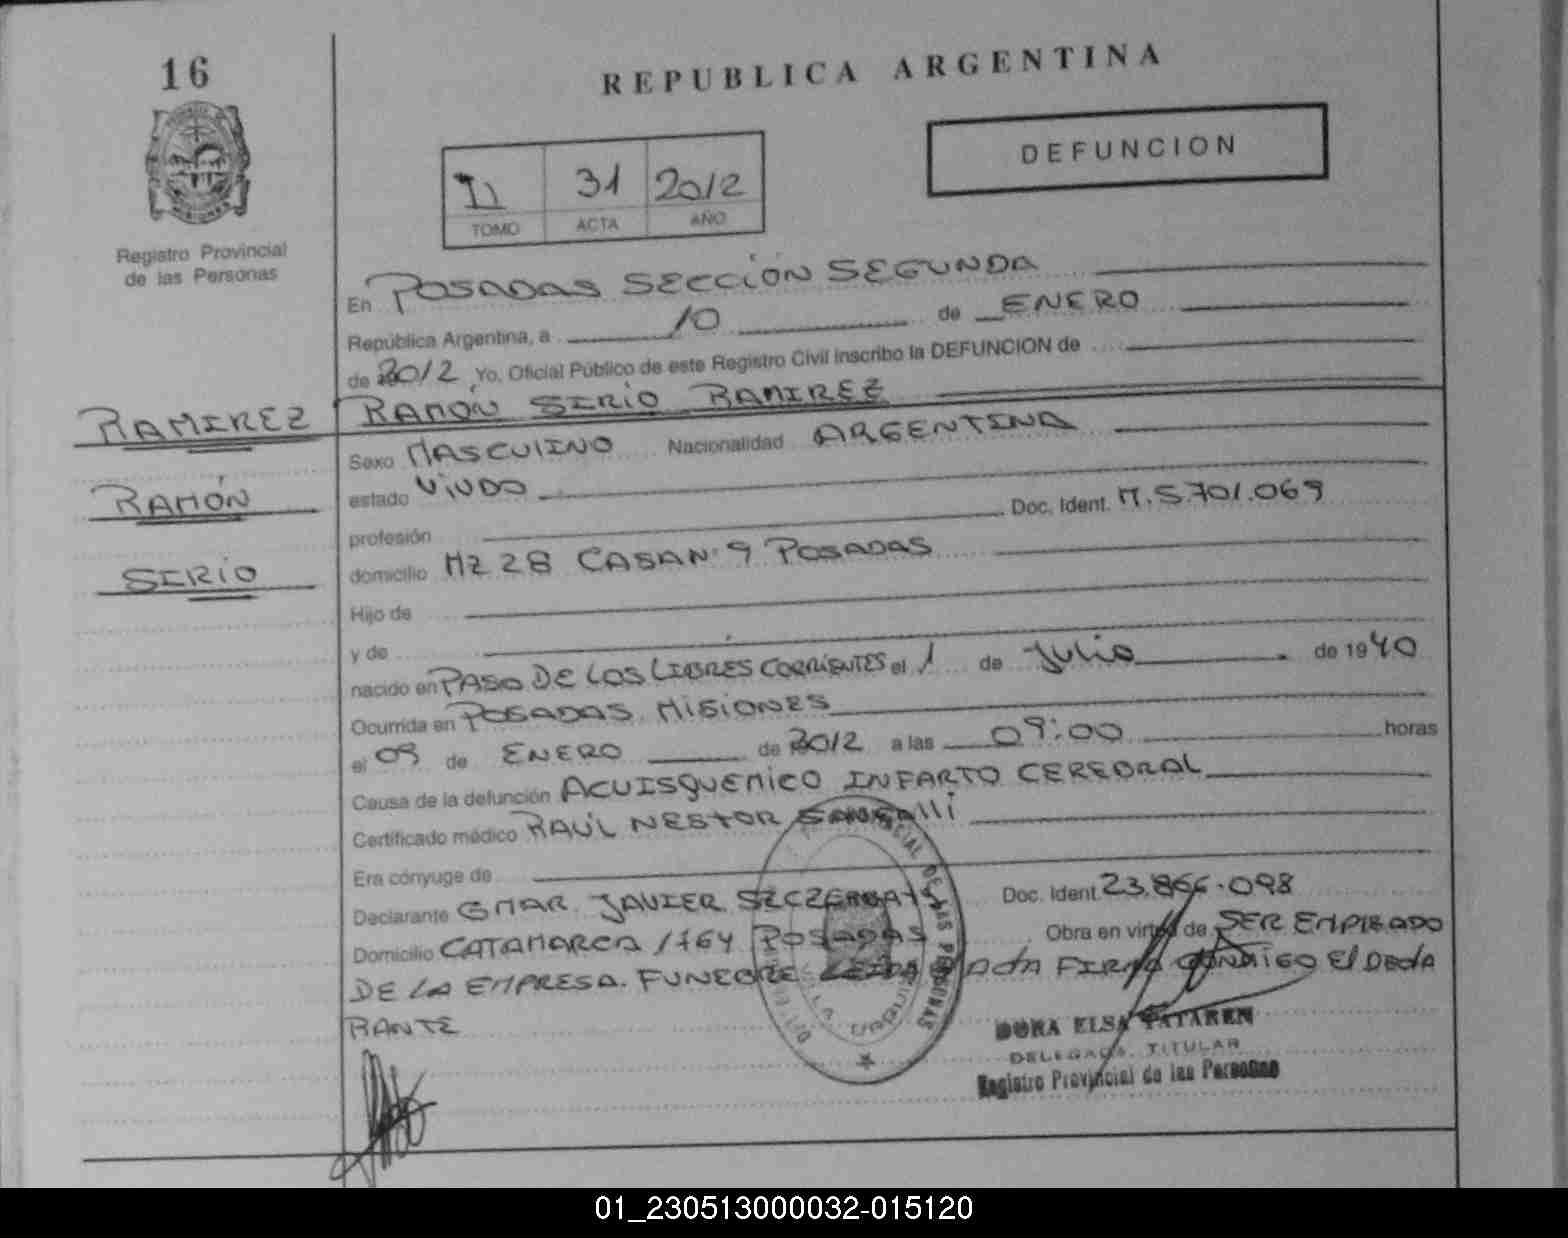 16
REPUBLICA ARGENTINA
DEFUNCION
II 31 2012
TOMO ACTA AÑO
Registro Provincial
de las Personas
En POSADAS SECCIÓN SEGUNDA
República Argentina, a 10 de ENERO
de 2012 Yo, Oficial Público de este Registro Civil inscribo la DEFUNCION de
RAMIREZ RAMÓN SIRIO RAMIREZ
Sexo MASCULINO Nacionalidad ARGENTINA
RAMÓN
estado VIUDO
profesión Doc. Ident. M.5701.069
SIRIO
domicilio MZ 28 CASA N° 9 POSADAS
Hijo de
y de
nacido en PASO DE LOS LIBRES CORRIENTES el 1 de Julio de 1940
Ocurrida en POSADAS MISIONES
el 09 de ENERO de 2012 a las 09:00 horas
Causa de la defunción ACUISQUEMICO INFARTO CEREBRAL
Certificado médico RAÚL NESTOR SANGALLI
Era cónyuge de
Declarante OMAR JAVIER Doc. Ident. 23.866.098
Domicilio CATAMARCA 1764 POSADAS Obra en virtud de SER EMPLEADO
DE LA EMPRESA FUNEBRE LEIDA ACTA FIRMA CONMIGO El DECLA
RANTE
DORA ELSA
DELEGADA TITULAR
Registro Provincial de las Personas
01_230513000032-015120